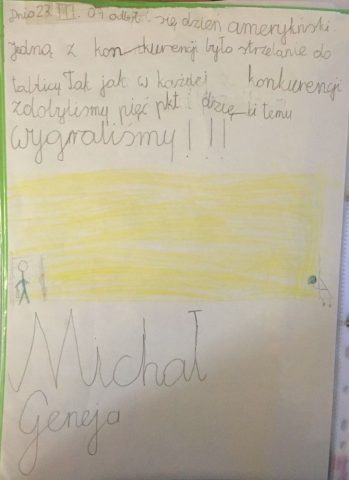 Dnia 23 III. 04 odbył się dzień amerykński.
jedną z kon kurengi było strzelanie do
tablicy Tak jak w każdej konkurengi
zdobyliśmy pięć pkt. i dzię ki temu
wygraliśmy!!!
Michał
Geneja